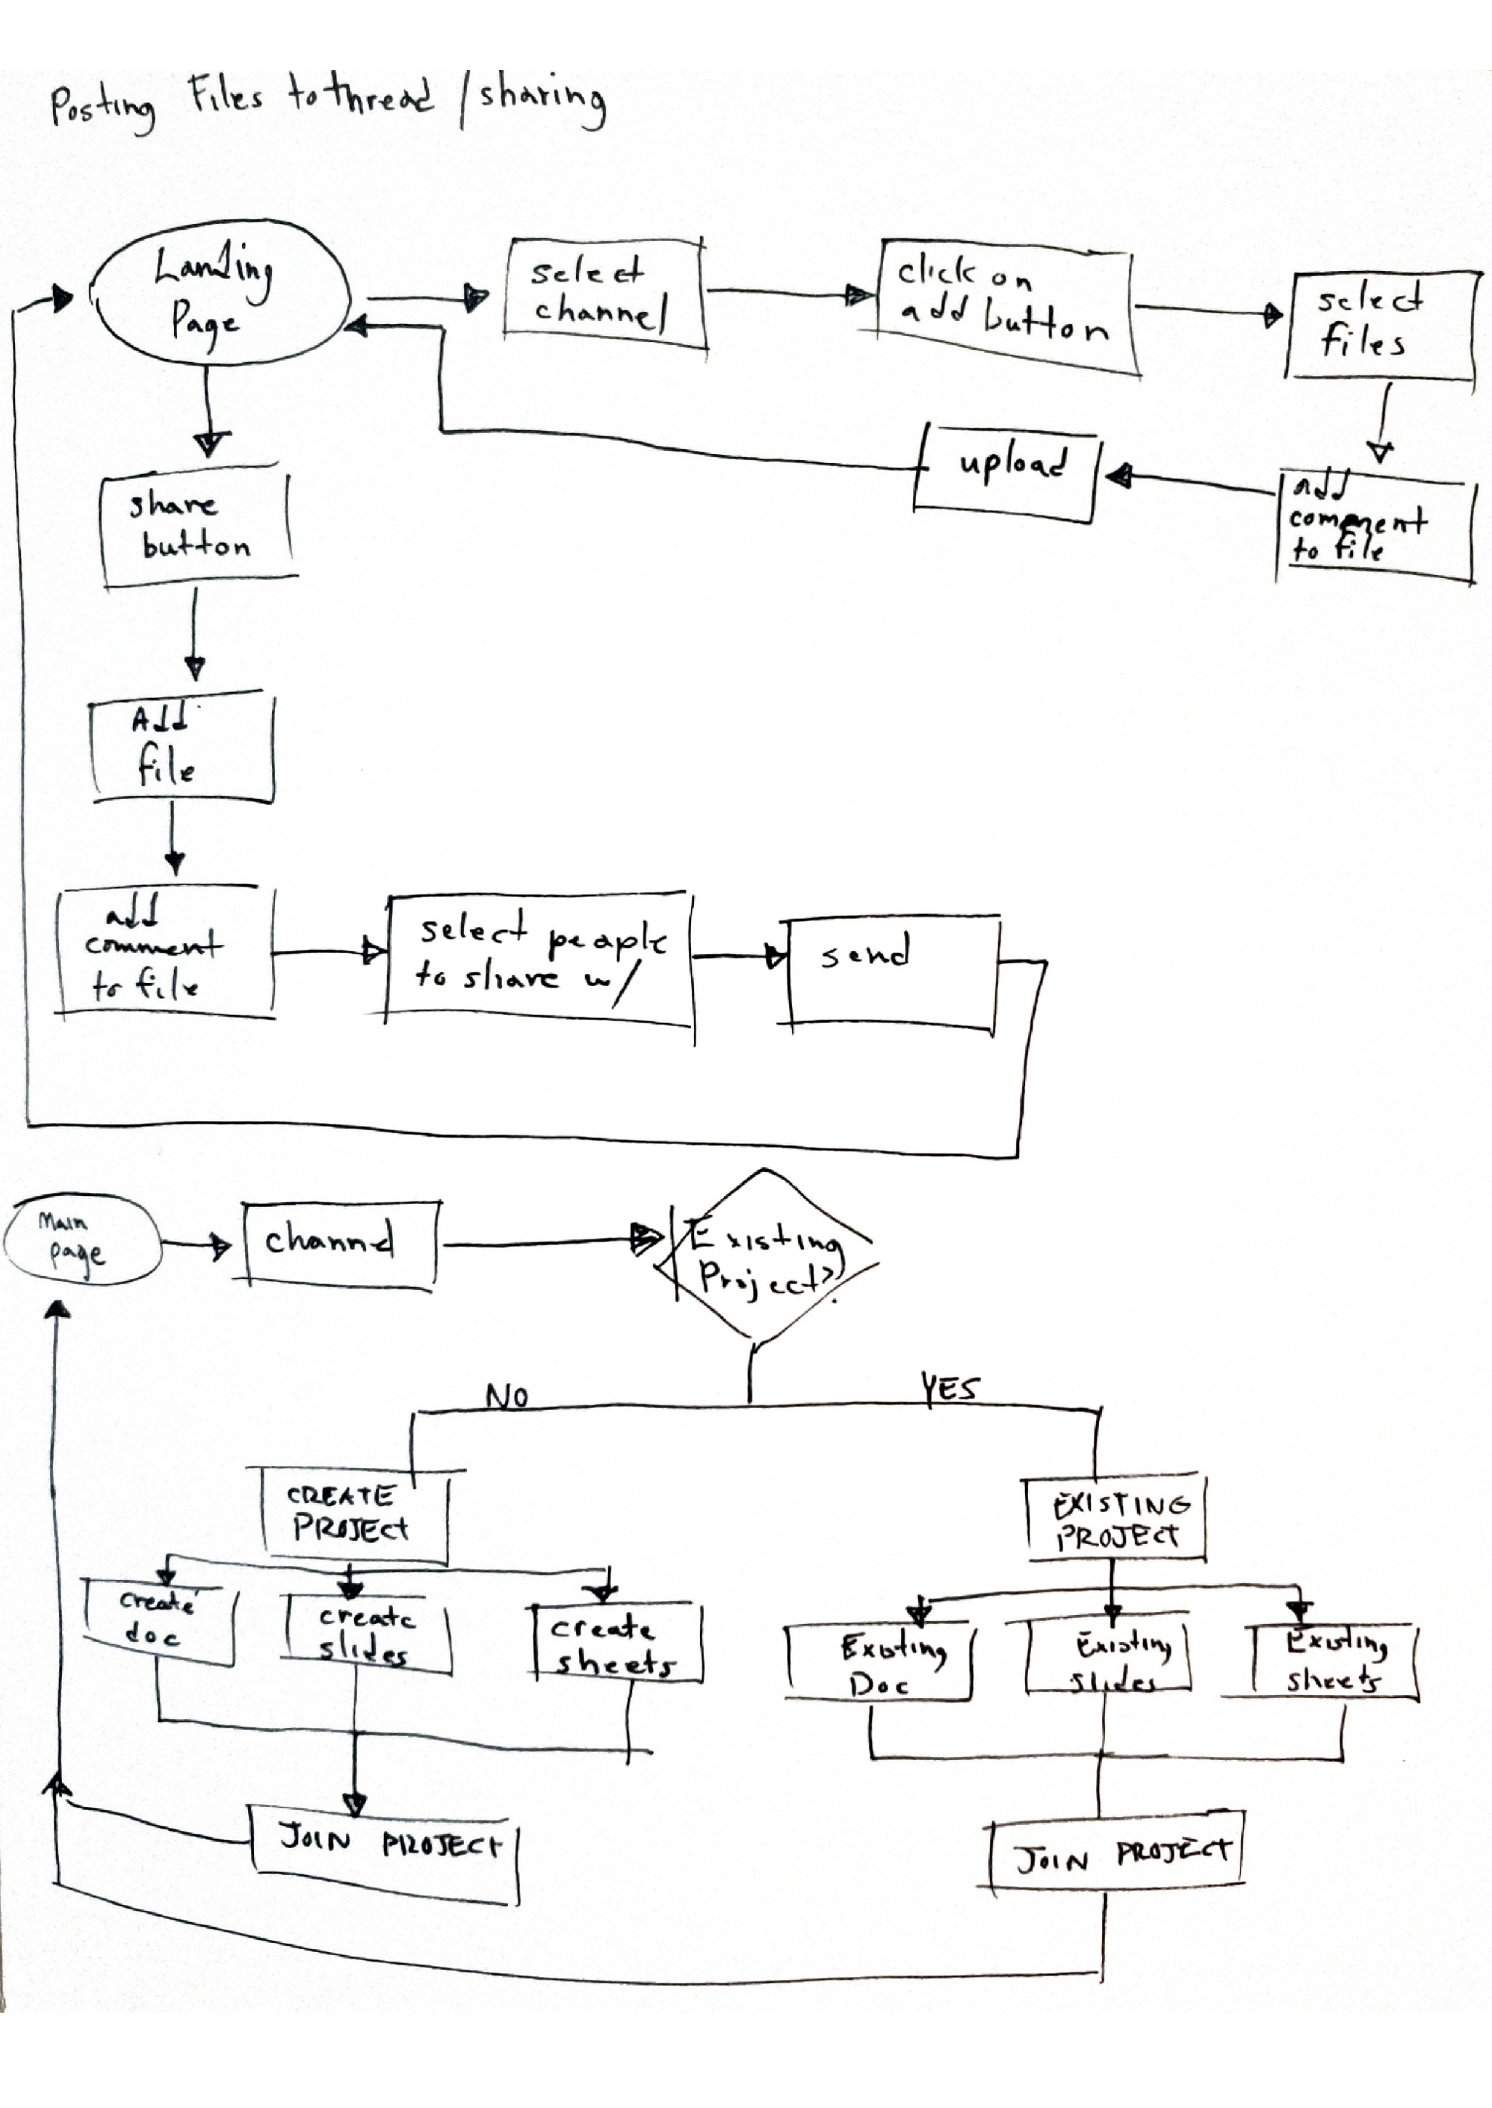 Posting Files to thread / sharing
Landing
Page
select
channel
click on
add button
select
files
add
comment
to file
upload
share
button
Add
file
add
comment
to file
select people
to share w/
send
Main
page
channel
Existing
Project?
NO
YES
CREATE
PROJECT
EXISTING
PROJECT
create
doc
create
slides
create
sheets
Existing
Doc
Existing
slides
Existing
sheets
JOIN PROJECT
JOIN PROJECT